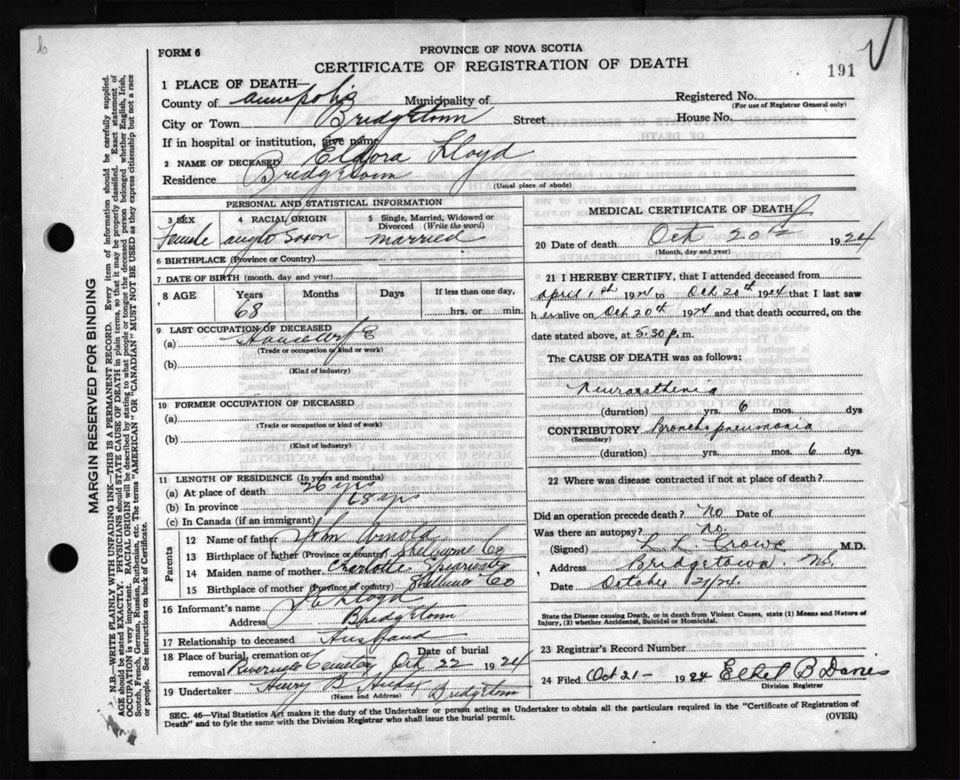 FORM 6
PROVINCE OF NOVA SCOTIA
CERTIFICATE OF REGISTRATION OF DEATH
191
MARGIN RESERVED FOR BINDING
N.B.—WRITE PLAINLY WITH UNFADING INK—THIS IS A PERMANENT RECORD. Every item of information should be carefully supplied.
AGE should be stated EXACTLY. PHYSICIANS should STATE CAUSE OF DEATH in plain terms, so that it may be properly classified. Exact statement of
OCCUPATION is very important. RACIAL ORIGIN will be described by stating to what people or tongue the deceased person belonged whether English, Irish,
Scotch, French, German, Russian, Ruthenian, etc. The terms "AMERICAN" OR "CANADIAN" MUST NOT BE USED as they express citizenship but not a race
or people. See instructions on back of Certificate.
1 PLACE OF DEATH—
County of Annapolis Municipality of Registered No.
(For use of Registrar General only)
City or Town Bridgetown Street House No.
If in hospital or institution, give name
2 NAME OF DECEASED Eldora Lloyd
Residence Bridgetown
(Usual place of abode)
PERSONAL AND STATISTICAL INFORMATION
3 SEX Female
4 RACIAL ORIGIN anglo Saxon
5 Single, Married, Widowed or Divorced (Write the word) married
6 BIRTHPLACE (Province or Country)
7 DATE OF BIRTH (month, day and year)
8 AGE Years Months Days If less than one day,
68 hrs. or min.
9 LAST OCCUPATION OF DECEASED
(a) Housewife
(Trade or occupation or kind or work)
(b)
(Kind of industry)
10 FORMER OCCUPATION OF DECEASED
(a)
(Trade or occupation or kind of work)
(b)
(Kind of industry)
11 LENGTH OF RESIDENCE (In years and months)
(a) At place of death 56 yrs
(b) In province 68 yrs
(c) In Canada (if an immigrant)
Parents
12 Name of father John Arnold
13 Birthplace of father (Province or country) Shelburne Co
14 Maiden name of mother Charlotte
15 Birthplace of mother (Province or country) Shelburne Co
16 Informant's name Lloyd
Address Bridgetown
17 Relationship to deceased Husband
18 Place of burial, cremation or removal Riverside Cemetery Date of burial Oct 22 1924
19 Undertaker Henry B Hicks Bridgetown
(Name and Address)
MEDICAL CERTIFICATE OF DEATH
20 Date of death Oct 20th 1924
(Month, day and year)
21 I HEREBY CERTIFY, that I attended deceased from
April 1st 1924 to Oct 20th 1924 that I last saw
her alive on Oct 20th 1924 and that death occurred, on the
date stated above, at 5.30 p.m.
The CAUSE OF DEATH was as follows:
Neurasthenia
(duration) yrs. 6 mos. dys
CONTRIBUTORY Broncho pneumonia
(Secondary)
(duration) yrs. mos. 6 dys
22 Where was disease contracted if not at place of death?
Did an operation precede death? No Date of
Was there an autopsy? No.
(Signed) L L Crowe M.D.
Address Bridgetown N.S.
Date October 21/24.
State the Disease causing Death, or in death from Violent Causes, state (1) Means and Nature of
Injury, (2) whether Accidental, Suicidal or Homicidal.
23 Registrar's Record Number
24 Filed Oct 21- 1924 Ethel B Danis
Division Registrar
SEC. 46—Vital Statistics Act makes it the duty of the Undertaker or person acting as Undertaker to obtain all the particulars required in the "Certificate of Registration of
Death" and to fyle the same with the Division Registrar who shall issue the burial permit.
(OVER)